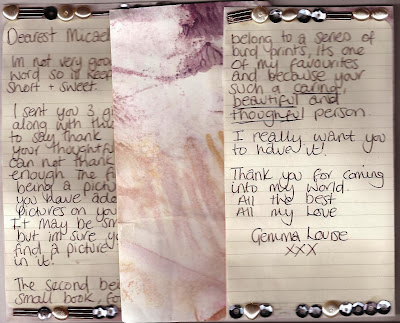 Dearest Micae
Im not very good
word so ill keep
Short + sweet.
I sent you 3 g
along with this
to say thank
your thoughtfu
can not thank
enough. The fi
being a pictu
you have ado
pictures on you
It may be sm
but im sure yo
find a picture
in it.
The Second bei
small book, fo
belong to a series of
bird prints, its one
of my favourites
and because your
such a caring,
beautiful and
thoughtful person.
I really want you
to have it!
Thank you for coming
into my world.
All the best
All my Love
Gemma Louise
xxx